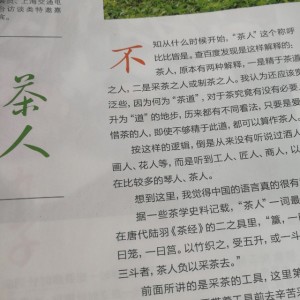 茶人
不知从什么时候开始，“茶人”这个称呼
比比皆是。查百度发现是这样解释的：
茶人，原本有两种解释，一是精于茶道
之人，二是采茶之人或制茶之人。我认为还应该
泛些，因为何为“茶道”，对于茶究竟有没有必要
升为“道”的地步，历来都有不同看法，只要是
惜茶的人，即使不够精于此道，都可以算作茶人
按这样的逻辑，倒是从来没有听说过酒人
画人、花人等，而是听到工人、匠人、商人，以
在比较多的琴人、茶人。
想到这里，我觉得中国的语言真的很有
据一些茶学史料记载，“茶人”一词最
在唐代陆羽《茶经》的二之具里，“籯，一
日笼，一曰筥。以竹织之，受五升，或一斗
三斗者，茶人负以采茶去。”
前面所讲的是采茶的工具，这里第